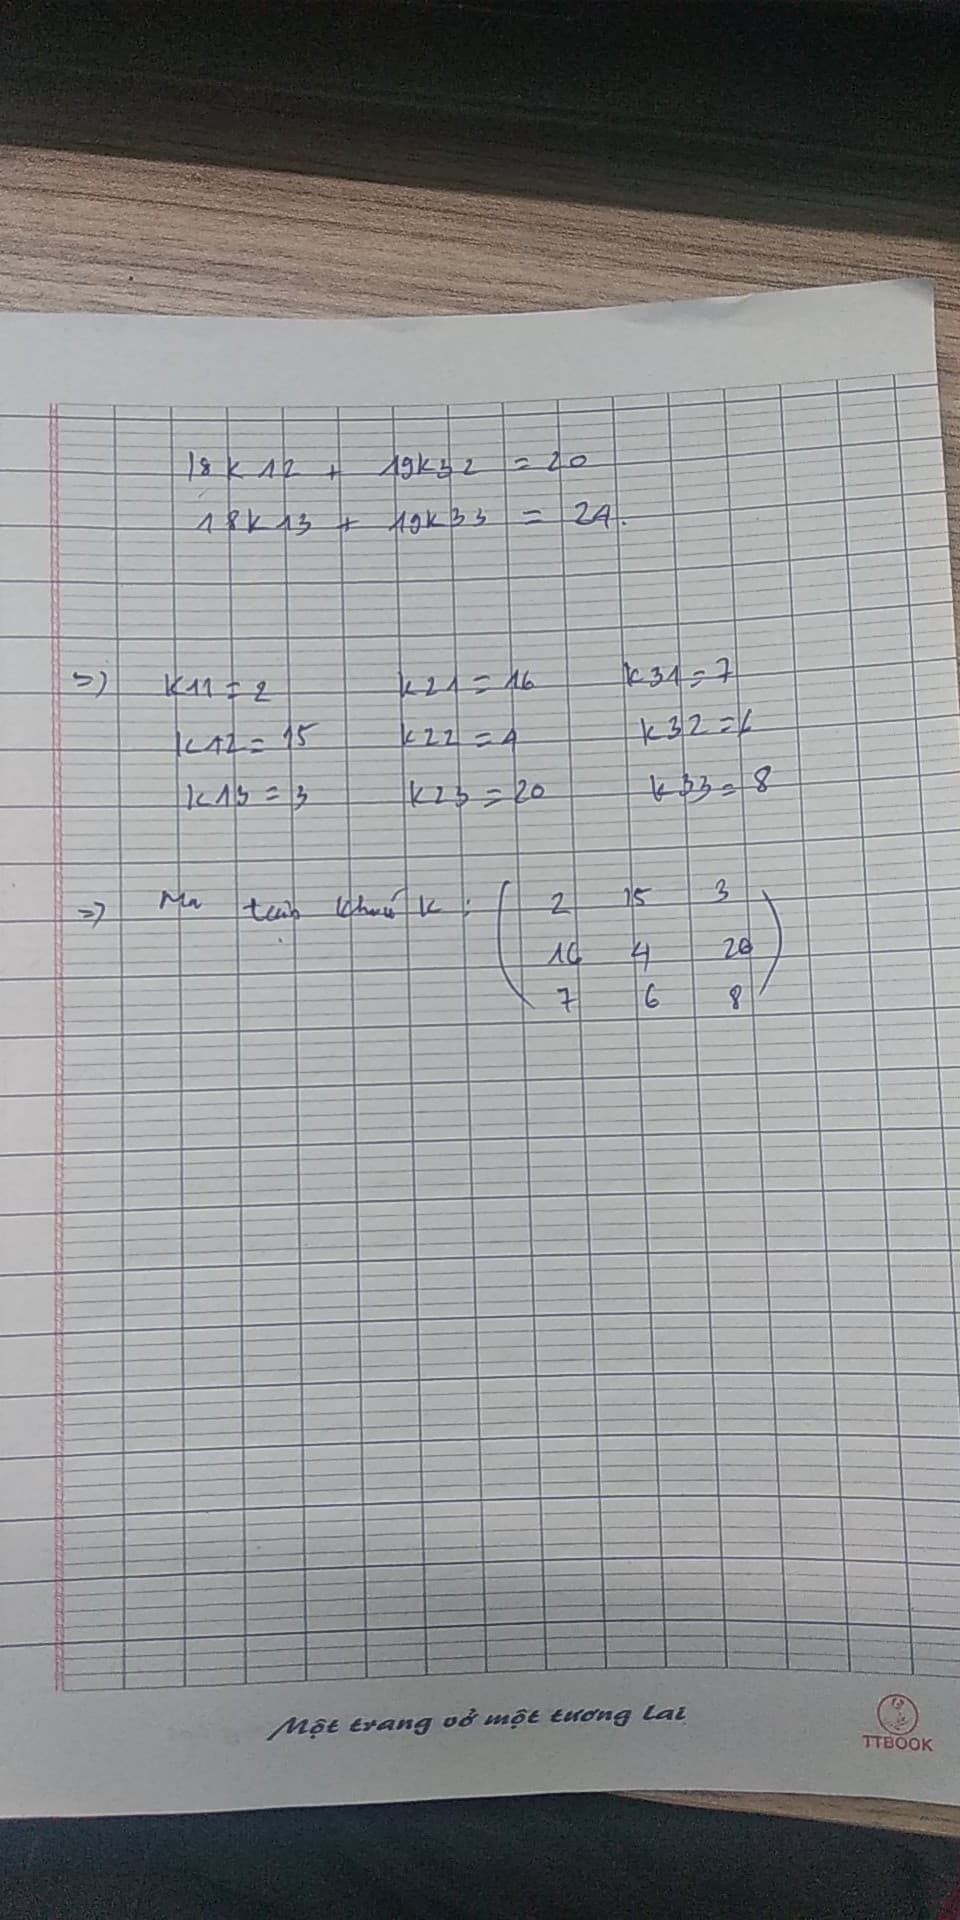 18k12 + 19k32 = 20
18k13 + 19k33 = 24.
=) k11 = 2 k21 = 16 k31 = 7
k12 = 15 k22 = 4 k32 = 6
k13 = 3 k23 = 20 k33 = 8
=) Ma trận khoá k : ( 2 15 3
16 4 20
7 6 8 )
Một trang vở một tương lai
TTBOOK